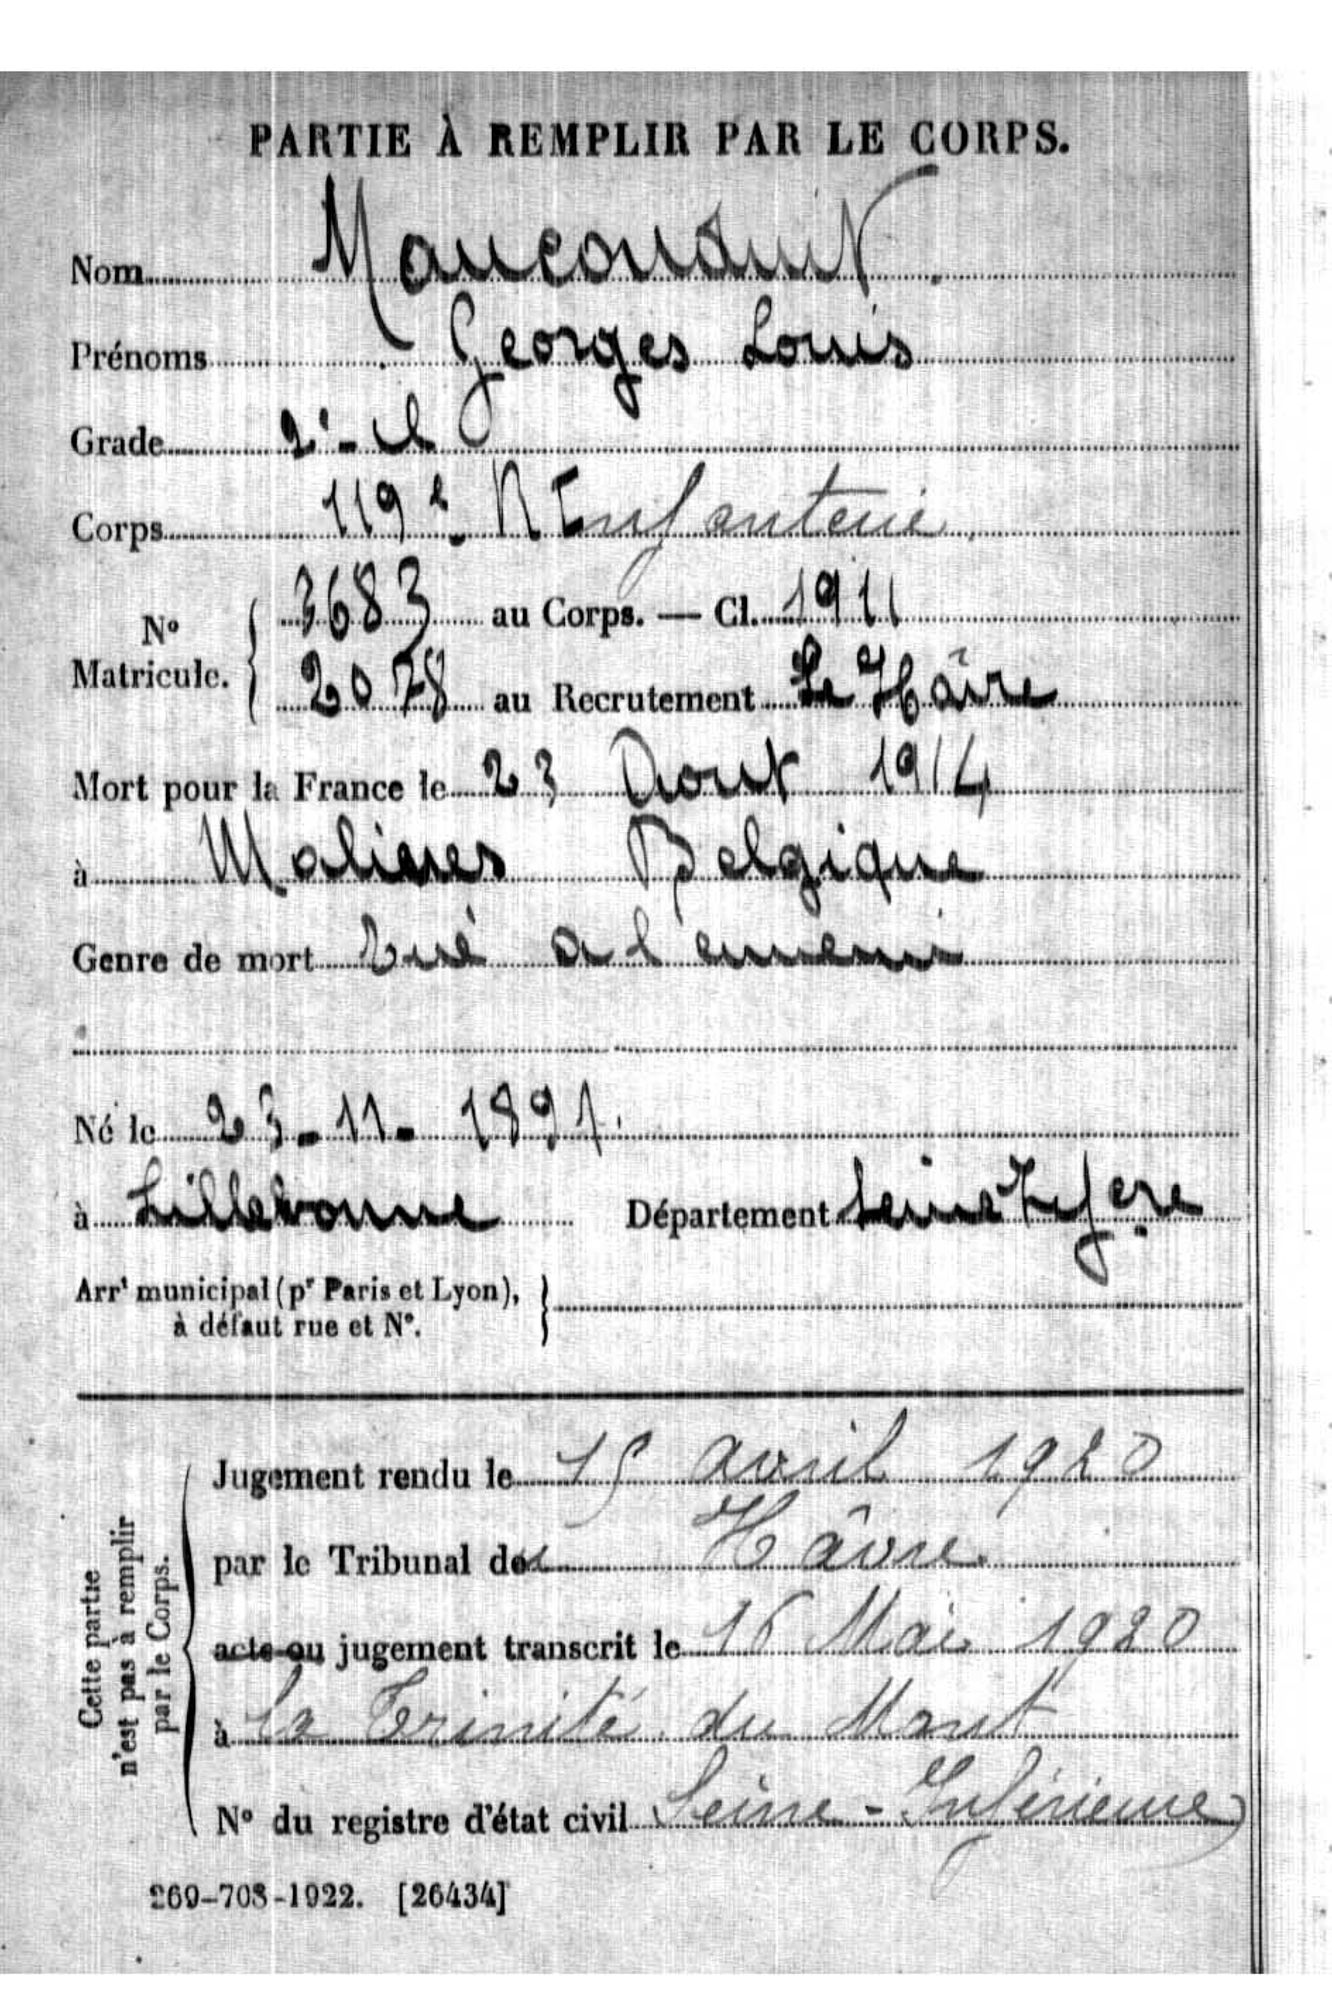 PARTIE À REMPLIR PAR LE CORPS.
Nom Mauconduit.
Prénoms Georges Louis
Grade 2e - cl
Corps 119e R Infanterie
3683 au Corps. — Cl. 1911
N° Matricule.
2078 au Recrutement Le Hâvre
Mort pour la France le 23 Aout 1914
à Malines Belgique
Genre de mort Tué a l'ennemi
Né le 23-11-1891.
à Lillebonne Département Seine Infere
Arrt municipal (pr Paris et Lyon),
à défaut rue et N°.
Cette partie
n'est pas à remplir
par le Corps.
Jugement rendu le 15 avril 1920
par le Tribunal du Hâvre.
acte ou jugement transcrit le 16 Mai 1920
à la Trinité du Mont
N° du registre d'état civil Seine-Inférieure)
269-708-1922. [26434]